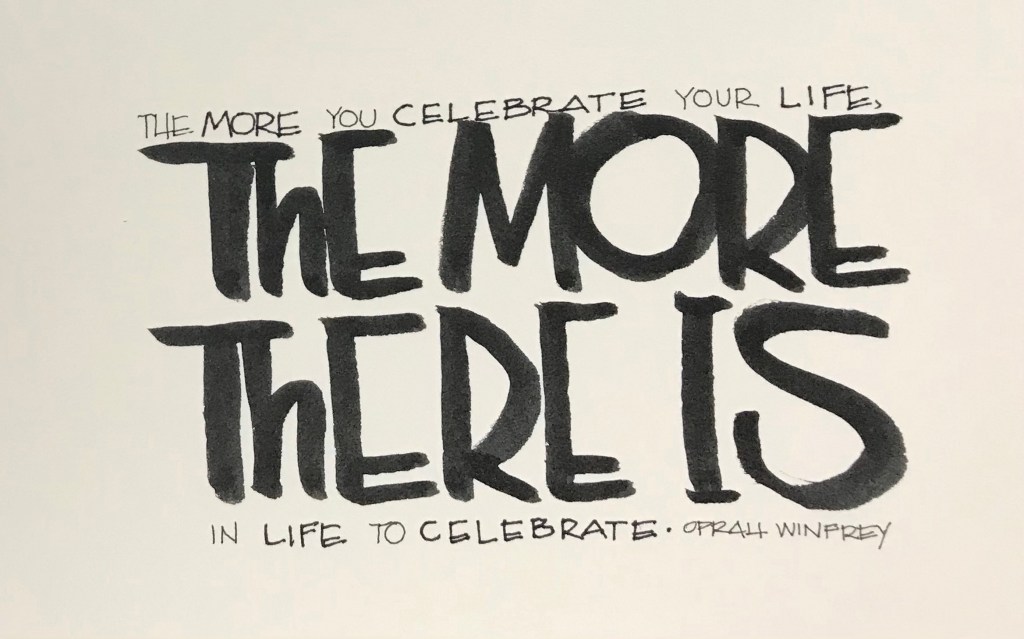 THE MORE YOU CELEBRATE YOUR LIFE,
ThE MORE
ThERE IS
IN LIFE TO CELEBRATE. OPRAH WINFREY